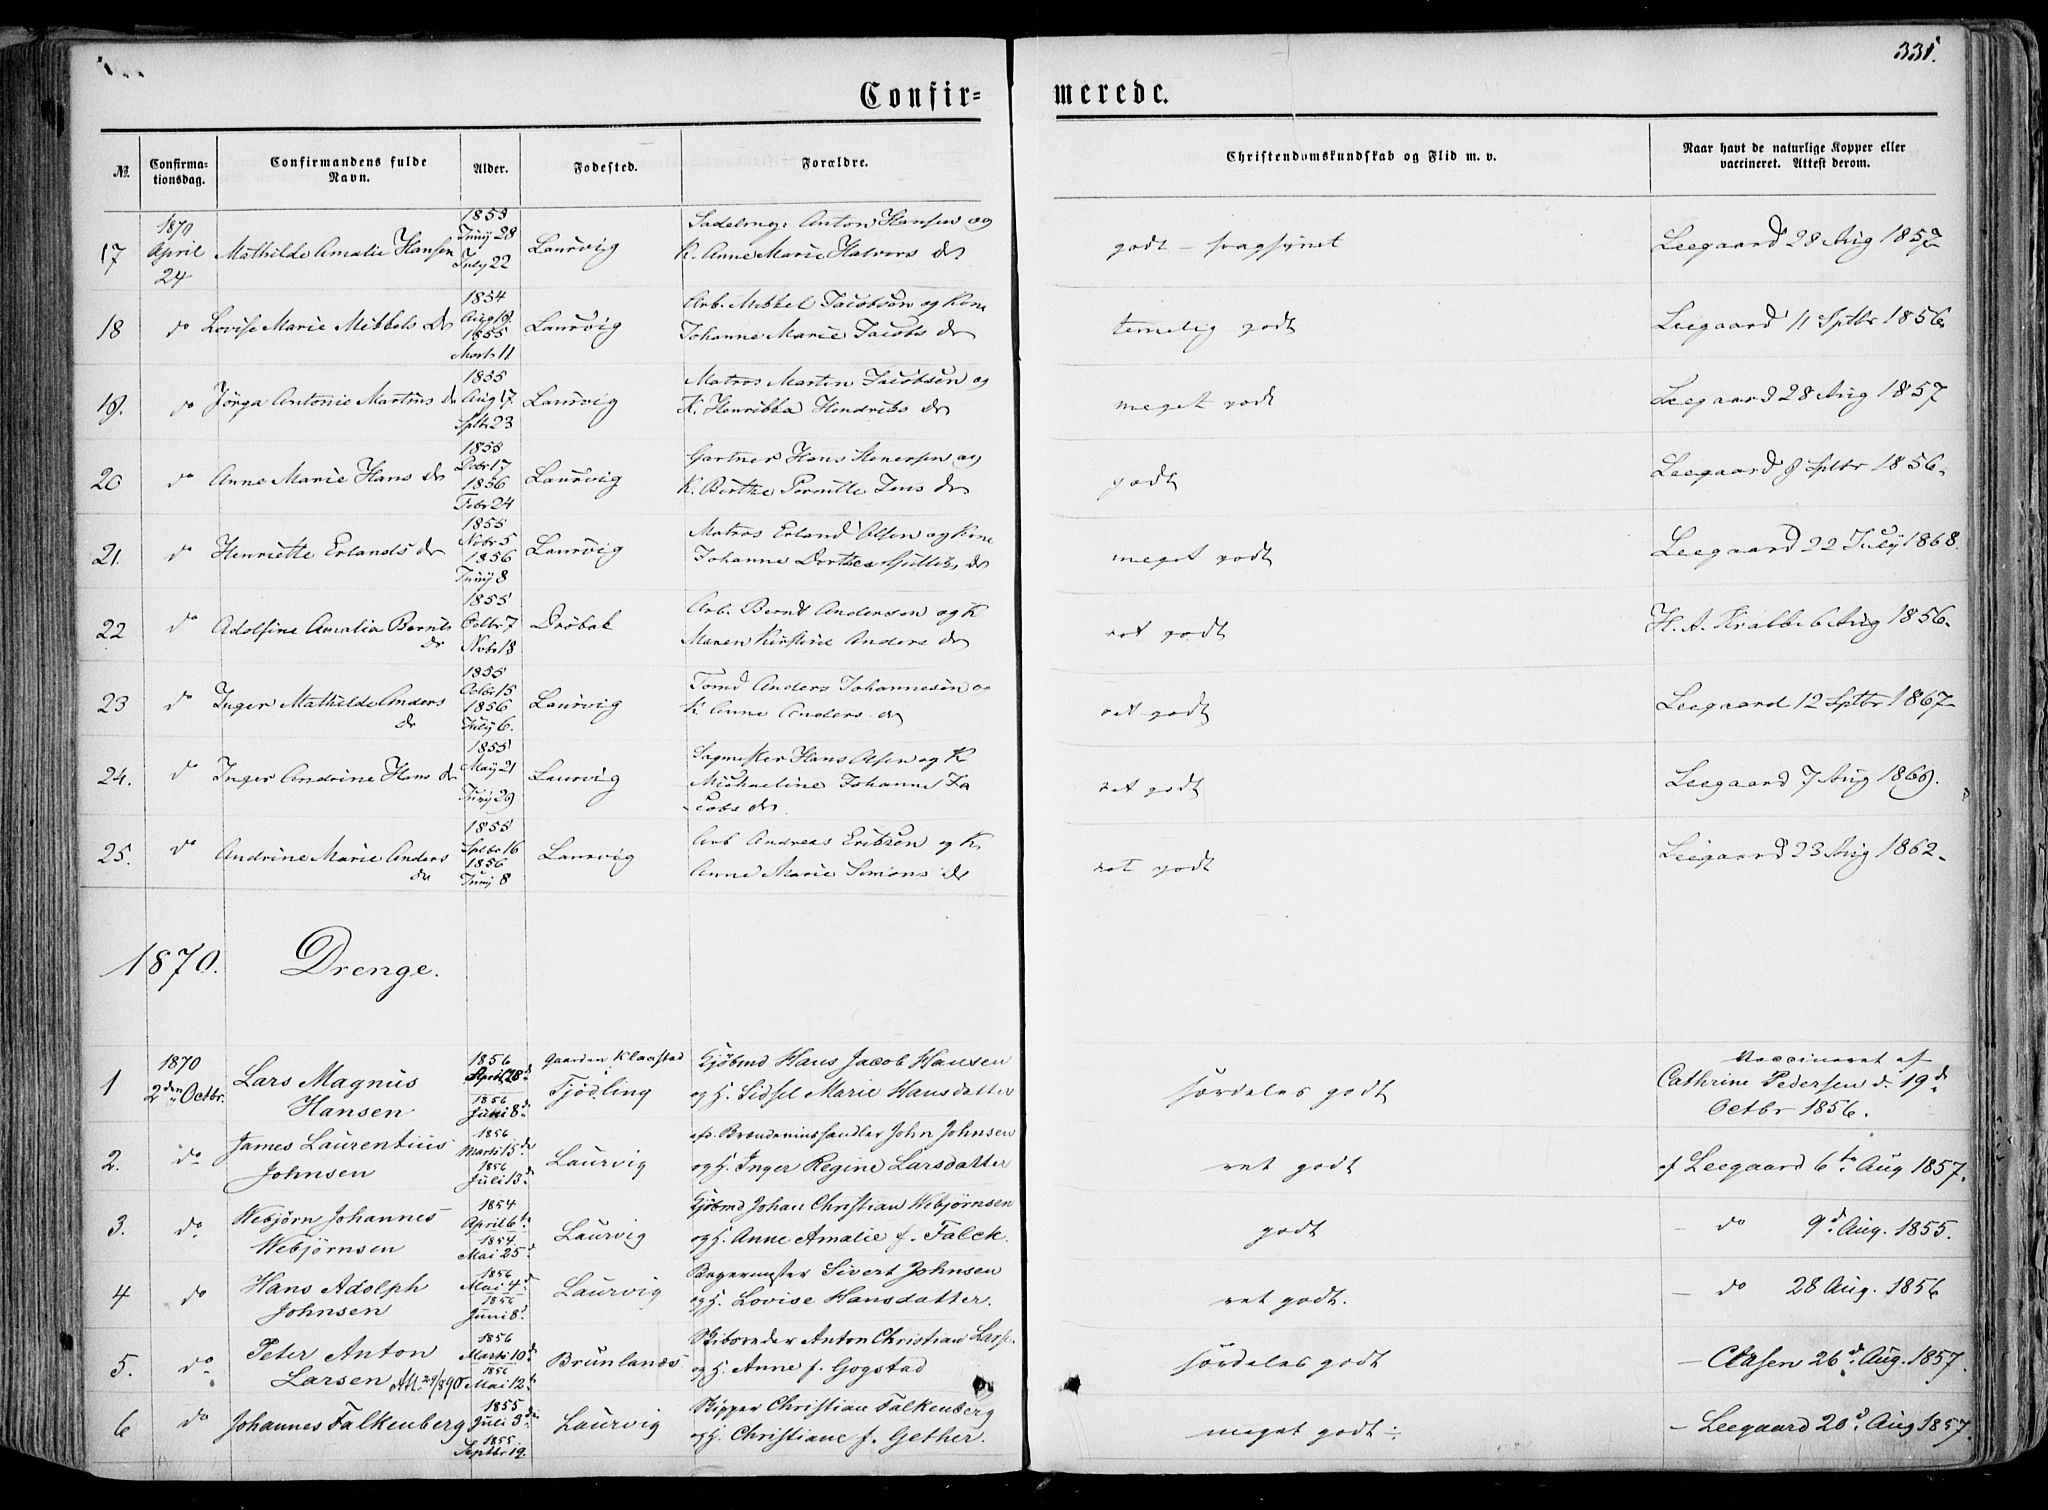 331.
Confir=
merede.
No. Confirma-tionsdag. Confirmandens fulde Navn. Alder. Fødested. Forældre. Christendomskundskab og Flid m. v. Naar havt de naturlige Kopper eller vaccineret. Attest derom.
17 1870 April 24 Mathilde Amalie Hansen Juny 28 July 22 Laurvig Anton Hansen og K. Anne Marie Halvors dr godt - svagsynet Leegaard 28 Aug 1857
18 do Lovise Marie Mikkels dr 1854 Aug 19. 1855 Marts 11 Laurvig Arb. Mikkel Jacobsen og Kone Johanne Marie Jacobs dr temelig godt Leegaard 11 Sptbr 1856
19. do Jörga Antonie Martins dr 1855 Aug 17 Sptbr 23 Laurvig Matros Martin Jacobsen og K. Henrikka Hendriks dr meget godt Leegaard 28 Aug 1857
20 do Anne Marie Hans dr 1855 Dcbr 17 1856 Febr 24 Laurvig Gartner Hans Stenersen og K. Berthe Pernille Jens dr godt Leegaard 8 Sptbr 1856.
21. do Henriette Erlands dr 1855 Nvbr 5 1856 Juny 8 Laurvig Matros Erland Olsen og Kone Johanne Dorthea dr meget godt Leegaard 22 July 1868.
22 do Adolfine Amalia Bernts dr 1855 Octbr 7 Nvbr 18 Dröbak Arb. Bernt Andersen og K Maren Kirstine Anders dr ret godt H. A. Krabbe 6 Aug 1856.
23 do Inger Mathilde Anders dr 1855 Octbr 15 1856 July 6. Laurvig Tomd Anders Johannesen og K Anne Anders dr ret godt Leegaard 12 Sptbr 1867
24. do Inger Andrine Hans dr 1855 May 21 Juny 29 Laurvig Sagmester Hans Olsen og K Michaeline Johanne Jacobs dr ret godt Leegaard 7 Aug 1869.
25. do Andrine Marie Anders dr 1855 Sptbr 16 1856 Juny 8 Laurvig Arb Andreas Eriksen og K. Anne Marie Simons dr ret godt Leegaard 23 Aug 1862.
1870. Drenge.
1 1870 2den Octbr. Lars Magnus Hansen 1856 April 28de 1856 Juni 8de Gaarden Klaastad Tjödling Gjöbmd Hans Jacob Hansen og H. Sidsel Marie Hansdatter særdeles godt Vaccineret af Cathrine Pedersen d. 19d Octbr 1856.
2. do James Laurentius Johnsen 1856 Marts 15de 1856 Juli 13d Laurvig afd. Brændeviinshandler John Johnsen og H. Inger Regine Larsdatter ret godt af Leegaard 6te Aug 1857.
3. do Webjørn Johannes Webjørnsen 1854 April 6te 1854. Mai 25d Laurvig Gjöbmd Johan Christian Webjørnsen og H. Anne Amalie f. Falck. godt - do 9d Aug. 1855.
4 do Hans Adolph Johnsen 1856 Mai 4d 1856 Juni 8d Laurvig Bagermester Sivert Johnsen og H. Lovise Hansdatter. ret godt. - do 28 Aug. 1856
5. do Peter Anton Larsen Att. 24/890 1856 Marts 10de 1856 Mai 12t Brunlanæs Skibsreder Anton Christian Larsen og H. Anne f. Gogstad særdeles godt - Clasen 26d Aug. 1857.
6 do Johannes Falkenberg 1855 Juli 3die 1855. Septbr 19. Laurvig Skipper Christian Falkenberg og H. Christiane f. Gether. meget godt ÷ - Leegaard 20d Aug 1857.